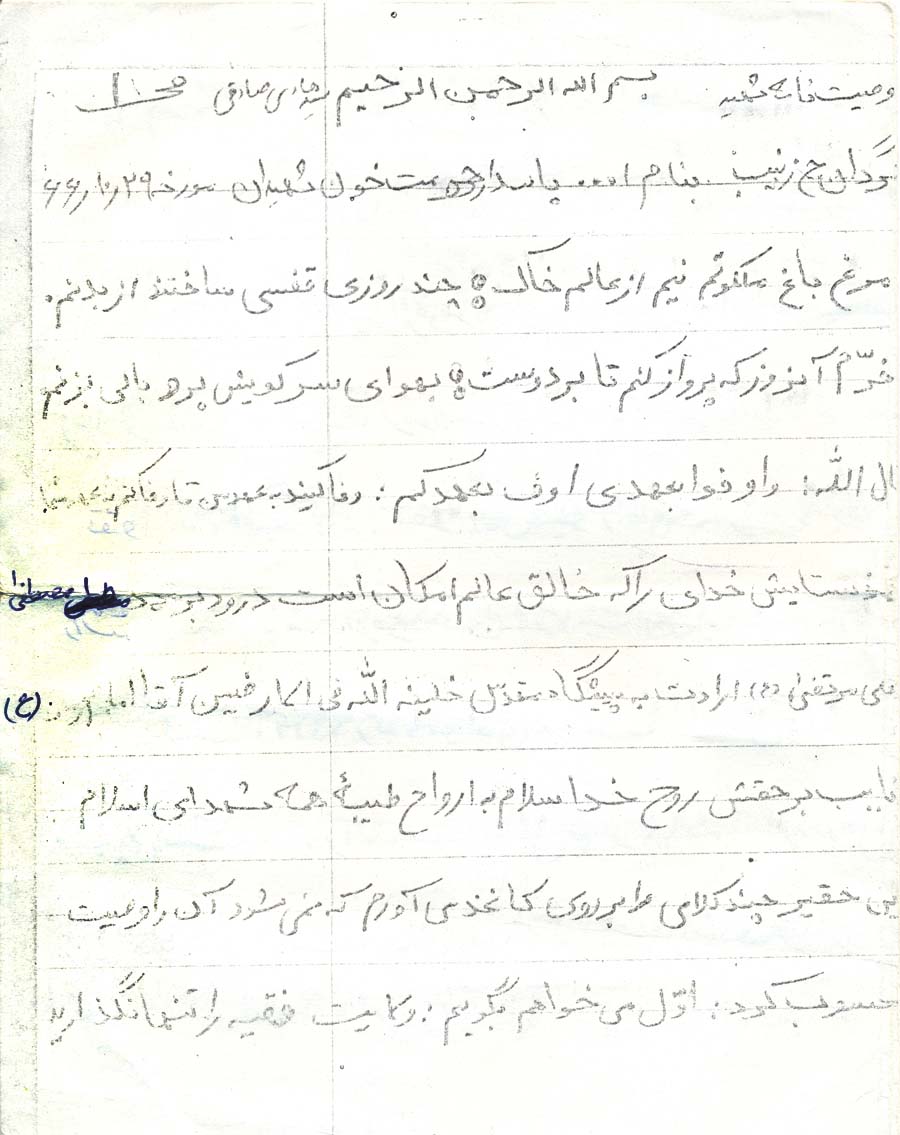 وصیت نامه شهید بسم الله الرحمن الرحیم سید هادی صادقی ص ۱
گردان ح زینب بنام ا... پاسدار حرمت خون شهیدان مورخه ۲۹ ر۱۰ ر۶۶
مرغ باغ ملکوتم نیم از عالم خاک چند روزی قفسی ساختند از بدنم.
خرّم آنروز که پرواز کنم تا بر دوست بهوای سر کویش پر و بالی بزنم
ال الله: و اوفوا بعهدی اوف بعهدکم: وفا کنید بعهد من تا وفا کنم بعهد شما
ستایش خدای را که خالق عالم امکان است درود بر محمد مصطفی
علی مرتضی (ع) ارادت به پیشگاه مقدس خلیفه الله فی الارضین آقا امام زمان (ع)
نایب بر حقش روح خدا سلام به ارواح طیبهٔ همه شهدای اسلام
ین حقیر چند کلامی را بر روی کاغذ می آورم که نمی شود آن را وصیت
حسوب کرد: اوّل می خواهم بگویم: ولایت فقیه را تنها نگذارید